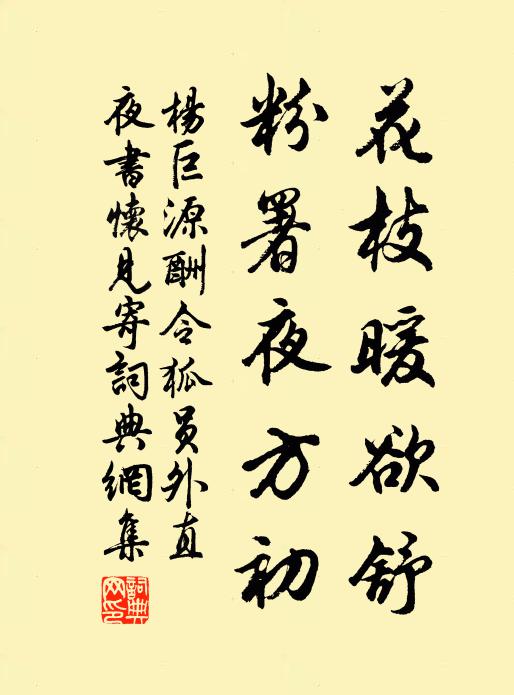 花枝暖欲舒
粉署夜方初
楊巨源酬令狐员外直
夜書懷見寄詞典網集
詞典网印